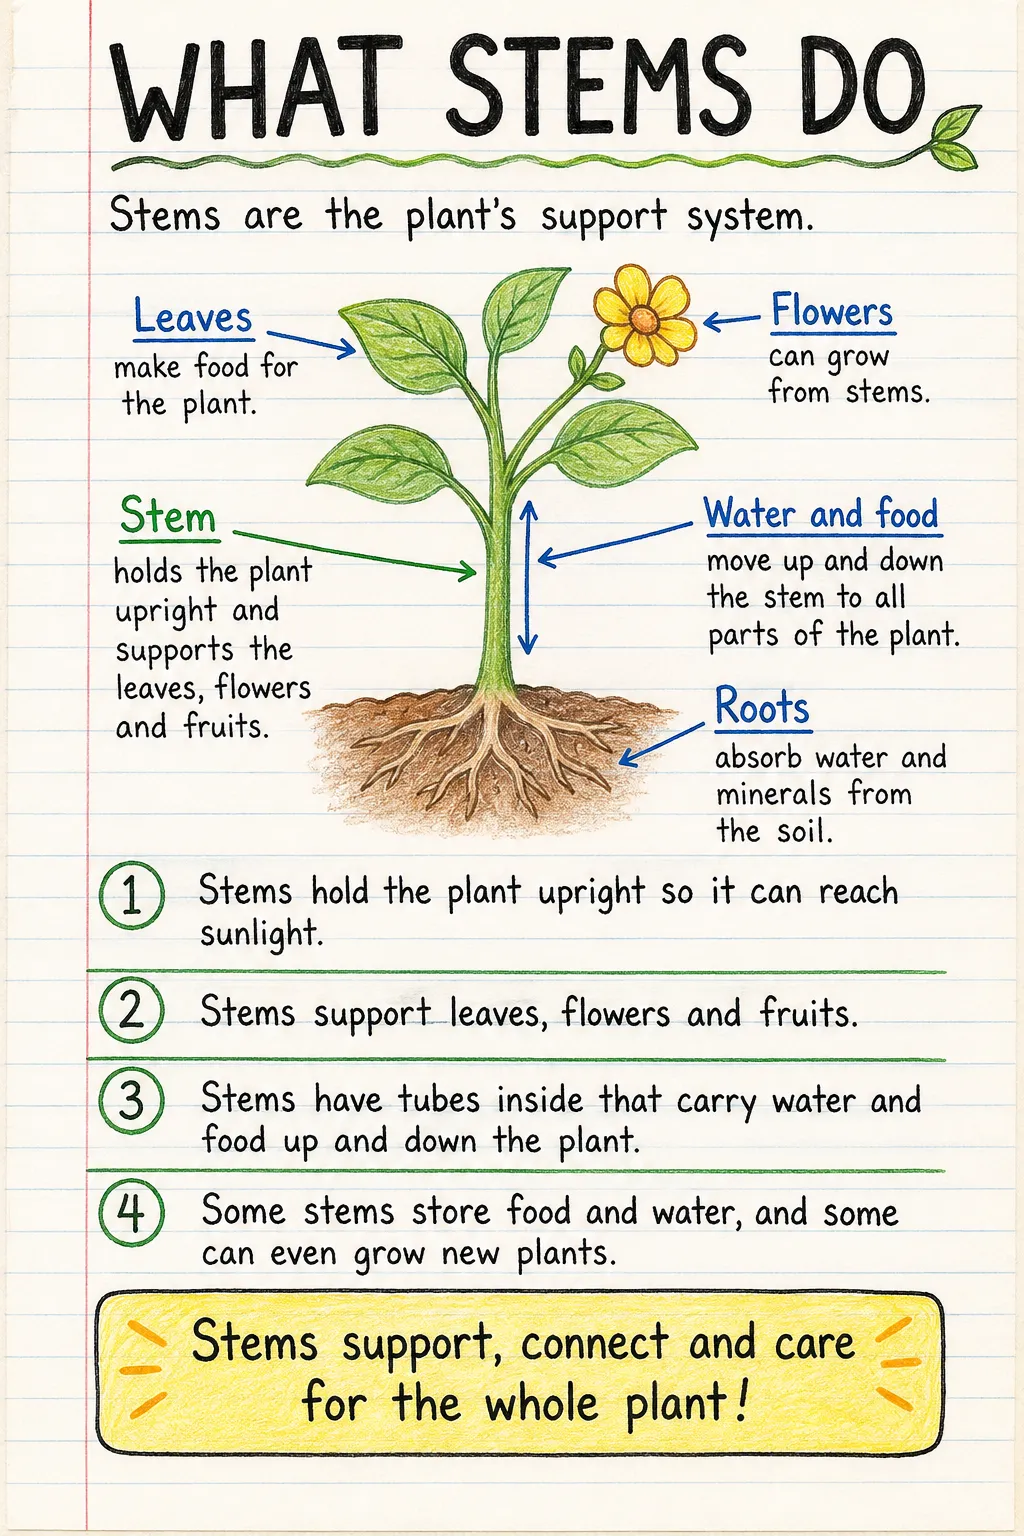 WHAT STEMS DO
Stems are the plant's support system.
Leaves
make food for
the plant.
Flowers
can grow
from stems.
Stem
holds the plant
upright and
supports the
leaves, flowers
and fruits.
Water and food
move up and down
the stem to all
parts of the plant.
Roots
absorb water and
minerals from
the soil.
1 Stems hold the plant upright so it can reach
sunlight.
2 Stems support leaves, flowers and fruits.
3 Stems have tubes inside that carry water and
food up and down the plant.
4 Some stems store food and water, and some
can even grow new plants.
Stems support, connect and care
for the whole plant!